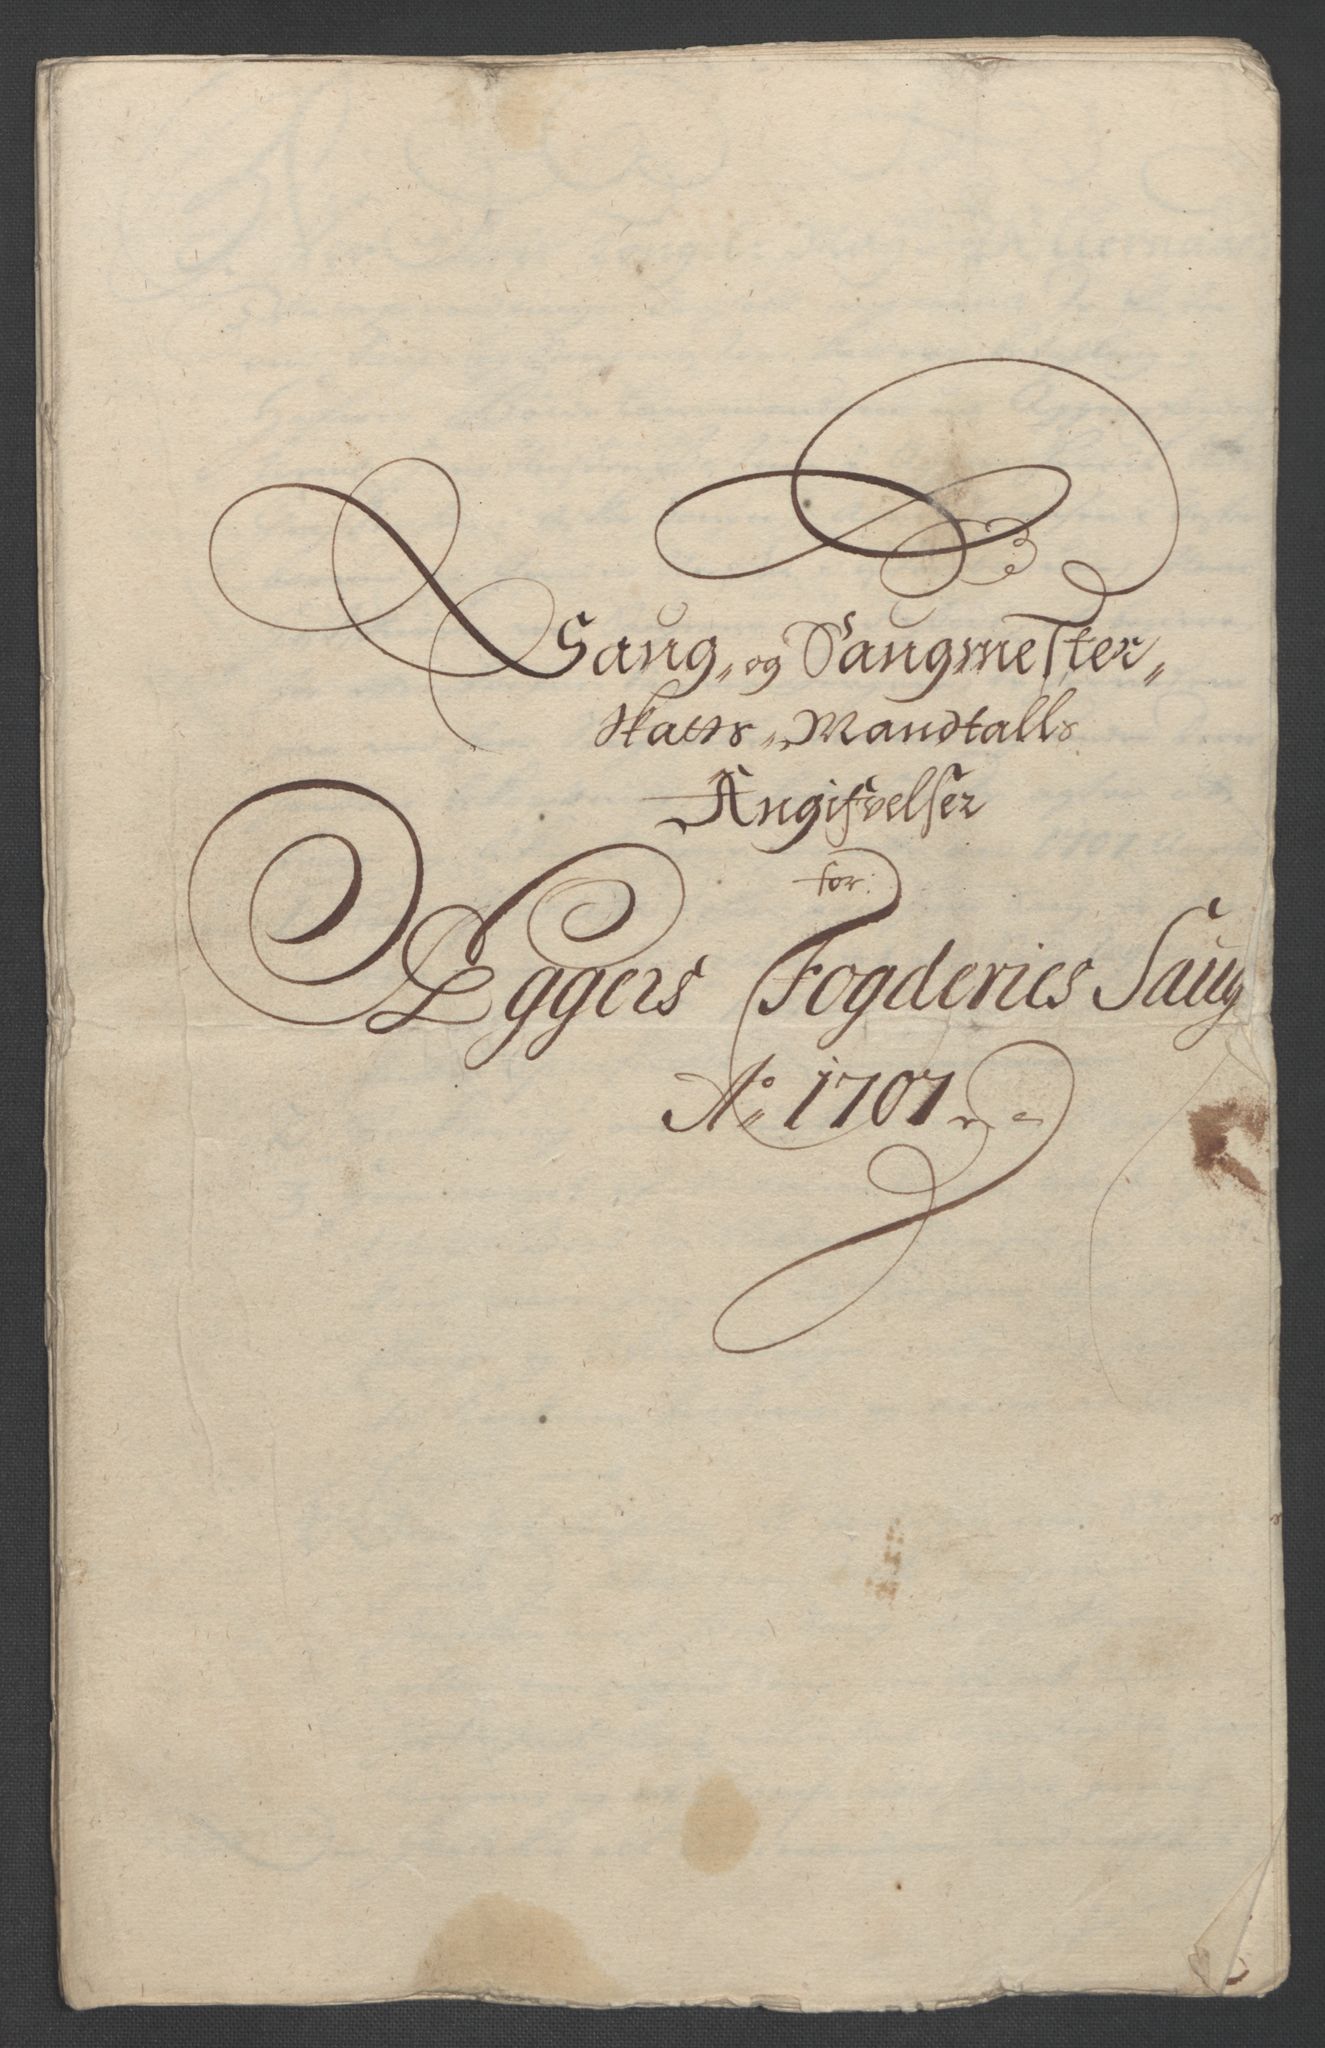 Saug- og Saugmester-
Skatts- Mandtalls
Angifvelser
for
Eggers Fogderies Saug
Ao 1707